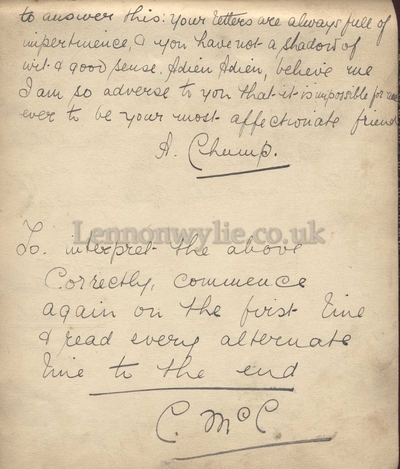 to answer this: Your letters are always full of
impertinence, & you have not a shadow of
wit & good sense. Adieu Adieu, believe me
I am so adverse to you that it is impossible for me
ever to be your most affectionate friend
A. Chump.
Lennonwylie.co.uk
To interpret the above
Correctly, commence
again on the first line
& read every alternate
line to the end
C. McC.